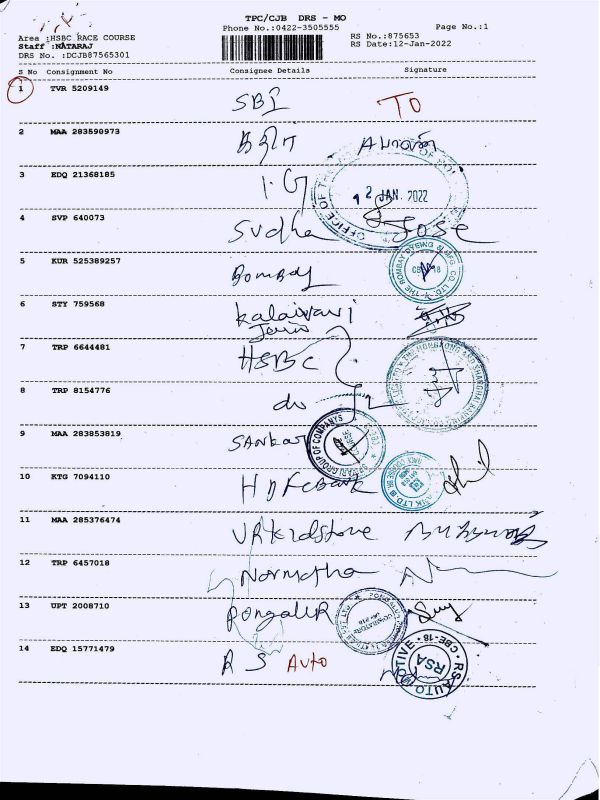 TPC/CJB DRS - MO
Phone No.:0422-3505555 Page No.:1
Area :HSBC RACE COURSE RS No.:875653
Staff :NATARAJ RS Date:12-Jan-2022
DRS No. :DCJB87565301
S No Consignment No Consignee Details Signature
1 TVR 5209149 SBI TO
2 MAA 283590973
3 EDQ 21368185 I.G
OFFICE OF THE
12 JAN. 2022
4 SVP 640073 Sudha Jose
5 KUR 525389257 Bombay
THE BOMBAY DYEING & MFG. CO. LTD.
CBE-18
6 STY 759568 Kalaivani
Jain
7 TRP 6644481 HSBC
THE HONGKONG AND SHANGHAI BANKING
8 TRP 8154776 do
9 MAA 283853819 Sankar
GROUP OF COMPANYS
10 KTG 7094110 HDFC Bank
11 MAA 285376474
12 TRP 6457018 Narmatha
13 UPT 2008710 Pongalur
14 EDQ 15771479 R S Auto
RS AUTOMOTIVE CBE-18
RSA